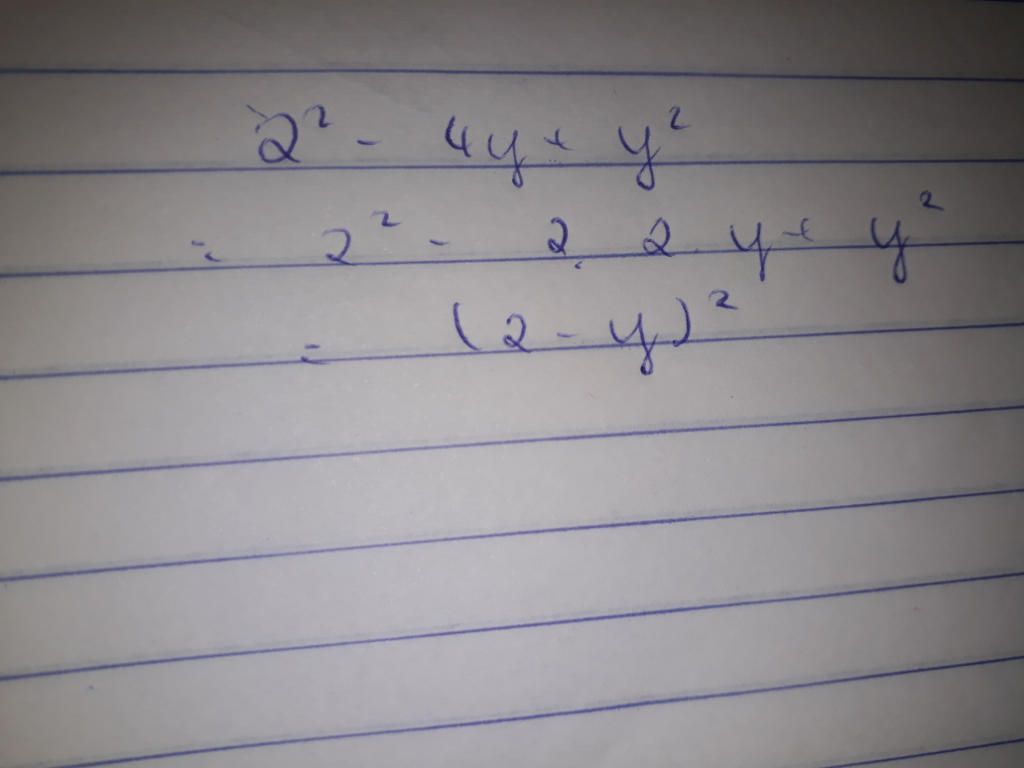 2² - 4y + y²
= 2² - 2. 2. y + y²
= (2 - y)²